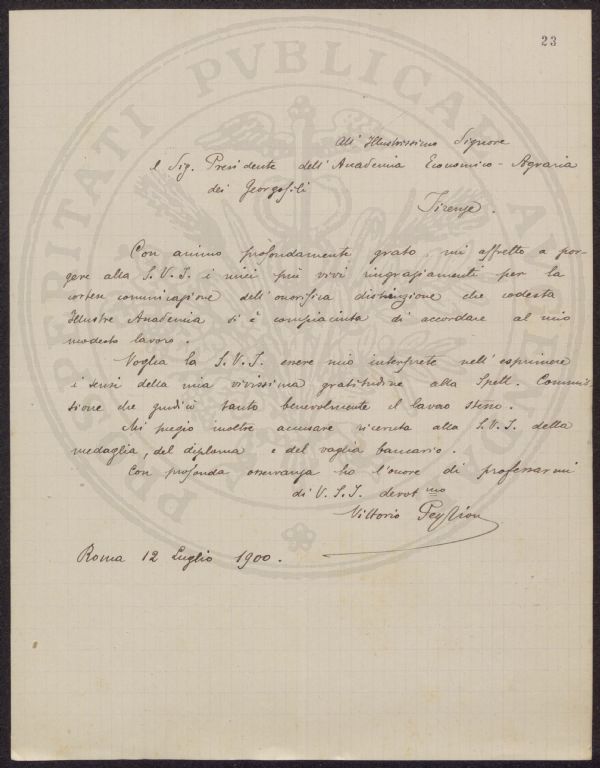 23
All' Illustrissimo Signore
il Sig. Presidente dell'Accademia Economico-Agraria
dei Georgofili
Firenze.
Con animo profondamente grato, mi affretto a por-
gere alla S.V.I. i miei più vivi ringraziamenti per la
cortese comunicazione dell'onorifica distinzione che codesta
Illustre Accademia si è compiaciuta di accordare al mio
modesto lavoro.
Voglia la S.V.I. essere mio interprete nell'esprimere
i sensi della mia vivissima gratitudine alla Spett. Commis
sione che giudicò tanto benevolmente il lavoro stesso.
Mi pregio inoltre accusare ricevuta alla S.V.I. della
medaglia, del diploma e del vaglia bancario.
Con profonda osservanza ho l'onore di professarmi
di V.S.I. devot mo
Vittorio
Roma 12 Luglio 1900.
PROSPERITATI PVBLICAE AVGENDAE